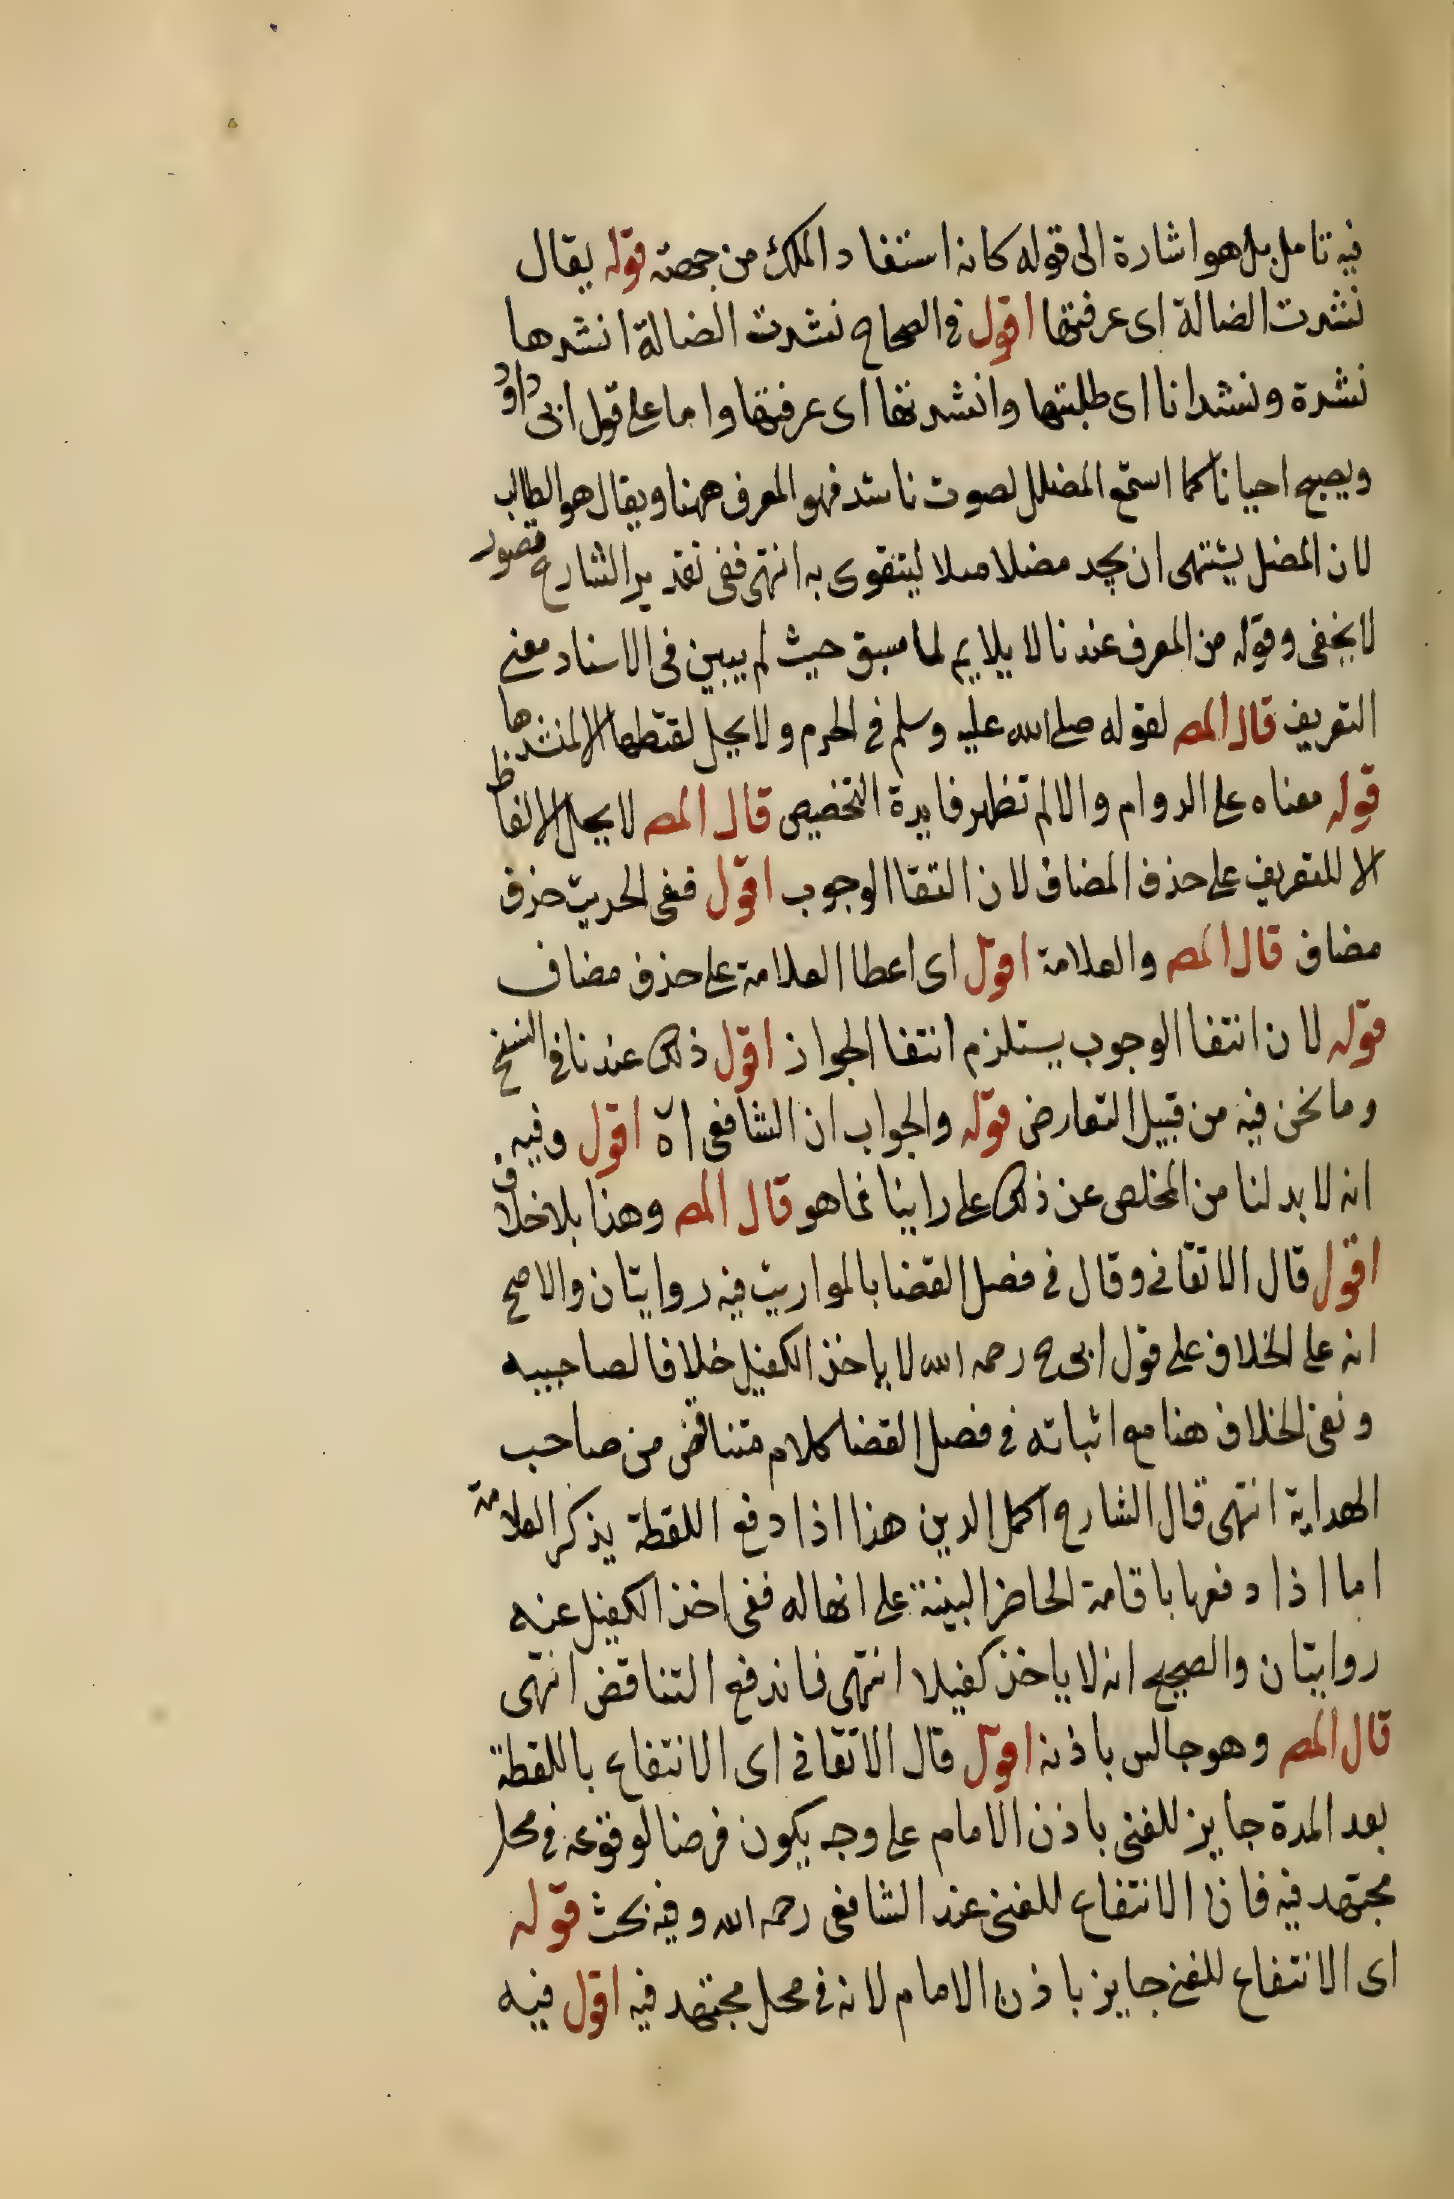 فيه تامل بل هو اشارة الى قوله كانه استفاد الملك من جهته قوله يقال
نشدت الضالة اى عرفتها اقول فى الصحاح نشدت الضالة انشدها
نشدة ونشدانا اى طلبتها وانشدتها اى عرفتها واما على قول ابى داود
ويصيح احيانا كما استمع المضلل لصوت ناشد فهو المعرف ههنا ويقال هو الطالب
لان المضل يشتهى ان يجد مضلا مثلا ليتقوى به انتهى ففى تقدير الشارح قصور
لا يخفى وقوله من المعرف عندنا لا يلايم لما سبق حيث لم يبين فى الاسناد معنى
التعريف قال المص لقوله صلى الله عليه وسلم فى الحرم ولا يحل لقتطها الا لمنشدها
قوله معناه على الدوام والا لم تظهر فايدة التخصيص قال المص لا يحل الالتقاط
الا للتعريف على حذف المضاف لان التقا الوجوب اقول ففى الحديث حذف
مضاف قال المص والعلامة اقول اى اعطا العلامة على حذف مضاف
قوله لان انتفا الوجوب يستلزم انتفا الجواز اقول ذلك عندنا فى النسخ
وما نحن فيه من قبيل التعارض قوله والجواب ان الشافعى اه اقول وفيه
انه لا بد لنا من المخلص عن ذلك على راينا فما هو قال المص وهذا بلا خلاف
اقول قال الاتقانى وقال فى فصل القضا بالمواريث فيه روايتان والاصح
انه على الخلاف على قول ابى ح رحمه الله لا ياخذ الكفيل خلافا لصاحبيه
ونفى الخلاف هنا مع اثباته فى فصل القضا كلام متناقض من صاحب
الهداية انتهى قال الشارح اكمل الدين هذا اذا دفع اللقطة يذكر العلامة
اما اذا دفعها باقامة الحاضر البينة على انها له ففى اخذ الكفيل عنه
روايتان والصحيح انه لا ياخذ كفيلا انتهى فاندفع التناقض انتهى
قال المص وهو جالس باذنه اقول قال الاتقانى اى الانتفاع باللقطة
بعد المدة جايز للغنى باذن الامام على وجه يكون قرضا لوقوعه فى محل
مجتهد فيه فان الانتفاع للغنى عند الشافعى رحمه الله وفيه بحث قوله
اى الانتفاع للغنى جايز باذن الامام لانه فى محل مجتهد فيه اقول فيه